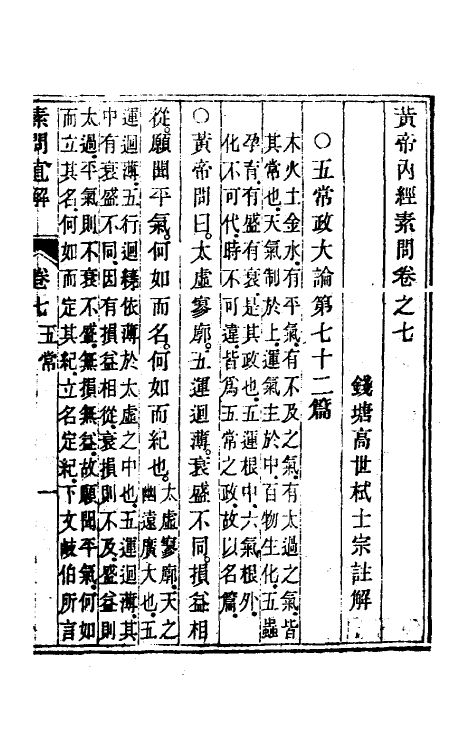 黃帝內經素問卷之七
錢塘高世栻士宗註解
○五常政大論第七十二篇
木火土金水有平氣有不及之氣有太過之氣皆
其常也天氣制於上運氣主於中百物生化五蟲
孕育有盛有衰是其政也五運根中六氣根外
化不可代時不可違皆爲五常之政故以名篇
○黃帝問曰太虛寥廓五運迴薄衰盛不同損益相
從願聞平氣何如而名何如而紀也太虛寥廓天之
幽遠廣大也五
運迴薄五行迴積依薄於太虛之中也五運迴薄其
中有衰盛不同因有損益相從衰損則不及盛益則
太過平氣則不衰不盛無損無益故願聞平氣何如
而立其名何如而定其紀立名定紀下文岐伯所言
素問直解
卷七 五常
一